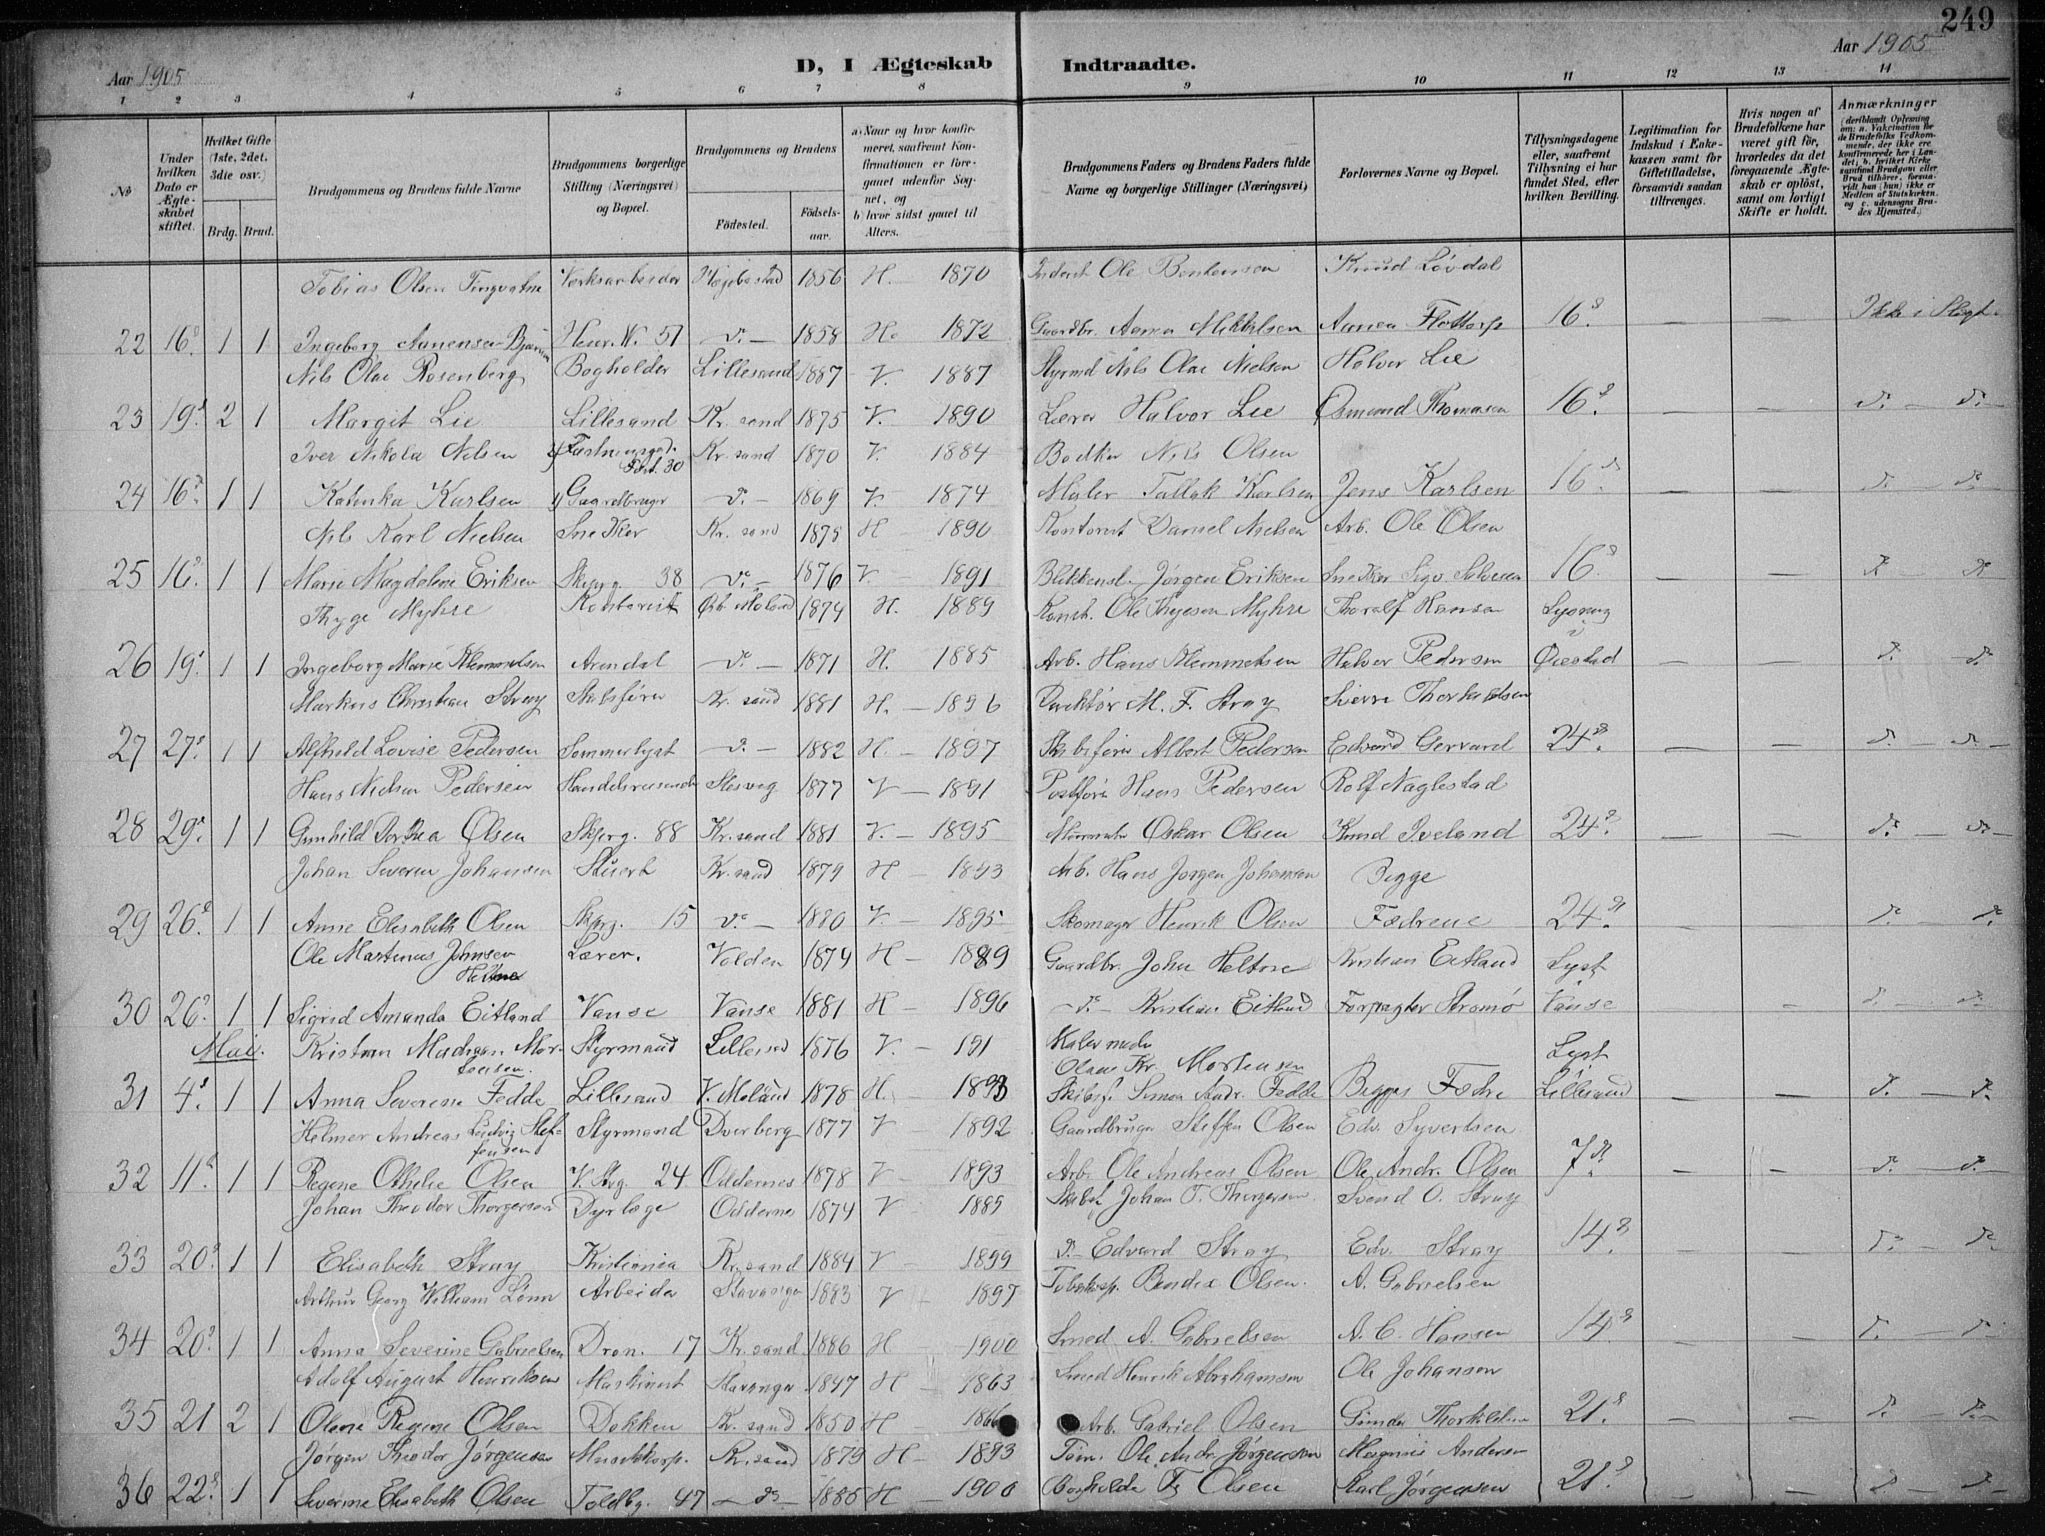 249
Aar 1905
D, I Ægteskab Indtraadte.
Aar 1905
1 2 3 4 5 6 7 8 9 10 11 12 13 14
No
Under hvilken Dato er Ægteskabet stiftet.
Hvilket Gifte (1ste, 2det, 3die osv.)
Brdg. Brud.
Brudgommens og Brudens fulde Navne
Brudgommens borgerlige Stilling (Næringsvei) og Bopæl.
Brudgommens og Brudens
Fødested.
Fødselsaar.
a) Naar og hvor konfirmeret, saafremt Konfirmationen er foregaaet udenfor Sognet, og
b) hvor sidst gaaet til Alters.
Brudgommens Faders og Brudens Faders fulde Navne og borgerlige Stillinger (Næringsvei)
Forlovernes Navne og Bopæl.
Tillysningsdagene eller, saafremt Tillysning ei har fundet Sted, efter hvilken Bevilling.
Legitimation for Indskud i Enkekassen samt for Giftetilladelse, forsaavidt saadan tiltrænges.
Hvis nogen af Brudefolkene har været gift før, hvorledes da det foregaaende Ægteskab er opløst, samt om lovligt Skifte er holdt.
Anmærkninger
Tobias Olsen 1856 H. 1870 Ole Bentensen Knud Løvdal
22 16. 1 1 Ingeborg Aanensen 51 d. — 1858 H. 1872 Gaardbr. Mikkelsen 16. — — Ikke i Slegt.
Nils Olai Rosenberg Bogholder Lillesand 1887 V. 1887 Styrmd Nils Olai Nielsen Halvor Lie
23 19. 2 1 Margit Lie Lillesand Kr. sand 1875 V. 1890 Lærer Halvor Lie Osmund Thomasen 16. — — d. — d. —
Iver Nikolai Nilsen 30 Kr. sand 1870 V. 1884 Bødker Nils Olsen
24 16. 1 1 Kathinka Karlsen d. — 1869 V. 1874 Maler Tallak Karlsen Jens Karlsen 16. — — d. d.
Nils Karl Nielsen Snekker Kr. sand 1875 H 1890 Kontorist Daniel Nielsen Arb. Ole Olsen
25 16. 1 1 Marie Magdalene Eriksen Skjerg. 38 d. — 1876 V. 1891 Blikkensl. Jørgen Eriksen Snekker Sigv. Salvesen 16. — — d. d.
Thyge Myhre Kontorist 1874 H. 1889 Ole Thygesen Myhre Thoralf Hansen
26 19. 1 1 Ingeborg Marie Klemmetsen Arendal d. — 1871 H. 1885 Arb. Hans Klemmetsen Halvor Pedersen Øiestad — — d. d.
Markus Christian Stray Skibsfører Kr. sand 1881 H. — 1896 Direktør M. F. Stray Sverre Thorkildsen
27 27. 1 1 Alfhild Lovise Pedersen Sommerlyst d. — 1882 H. — 1897 Skibsfører Albert Pedersen Edvard Gervard 24. — — d. — d. —
Hans Nielsen Pedersen Handelsreisende Slesvig 1877 V — 1891 Postfører Hans Pedersen Rolf Naglestad
28 29. 1 1 Gunhild Dorthea Olsen Skjerg. 88 Kr. sand 1881 V. — 1895 Oskar Olsen Knud Iveland 24. — — d. — d. —
Johan Severin Johansen Stuert Kr. sand 1879 H — 1893 Arb. Hans Jørgen Johansen Begge
29 26. 1 1 Anne Elisabeth Olsen Skjerg. 15 d. — 1880 V. — 1895 Skomager Henrik Olsen Fædrene 24. — — d. — d.
Ole Martinus Johnsen Heltne Lærer. Volden 1874 H — 1889 Gaardbr. John Heltne Kristian Eitland Lyst
30 26. 1 1 Sigrid Amanda Eitland Vanse Vanse 1881 H — 1896 — d. — Kristian Eitland Forpagter Strømø Vanse — d. — d.
Mai. Kristian Madsen Mortensen. Styrmand Lillesand 1876 V. — 191 Olaus Kr. Mortensen Lyst
31 4. 1 1 Anna Severine Fedde Lillesand V. Moland 1878 H. 1893 Skibsf. Simon Andr. Fedde Begges Fædre Lillesand — — d. — d.
Helmer Andreas Ludvig Steffensen Styrmand Dverberg 1877 V — 1892 Gaardbruger Steffen Olsen Edv. Syvertsen
32 11. 1 1 Regine Othelie Olsen V. Stvg. 24 Oddernes 1878 V — 1893 Arb. Ole Andreas Olsen Ole Andr. Olsen 7. — — d. — d.
Johan Theodor Thorgersen Dyrlæge Oddernes 1874 V — 1889 Johan T. Thorgersen Svend O. Stray
33 20. 1 1 Elisabeth Stray Kristiania Kr. sand 1884 V — 1899 d. — Edvard Stray Edv. Stray 14. — — d. — d.
Arthur Georg William Lønn Arbeider Stavanger 1883 V 1897 Bendix Olsen. A. Gabrielsen
34 20. 1 1 Anna Severine Gabrielsen Dron. 17 Kr. sand 1886 H — 1900 Smed A. Gabrielsen A. C. Hansen 14. — — d. — d.
Adolf August Henriksen Maskinist Stavanger 1847 H — 1863 Smed Henrik Abrahamsen Ole Johansen
35 21 2 1 Olene Regine Olsen Dokken Kr. sand 1850 H 1866 Arb. Gabriel Olsen Gunder Thorkildsen 21. — — d. — d. —
Jørgen Theodor Jørgensen Musikkorp. Kr. sand 1879 H — 1893 Tøm. Ole Andr. Jørgensen Magnus Andersen
36 22. 1 1 Severine Elisabeth Olsen Toldbg. 47 — d. — 1885 H — 1900 Bogholder Fr. Olsen Karl Jørgensen 21. — — d. — d.